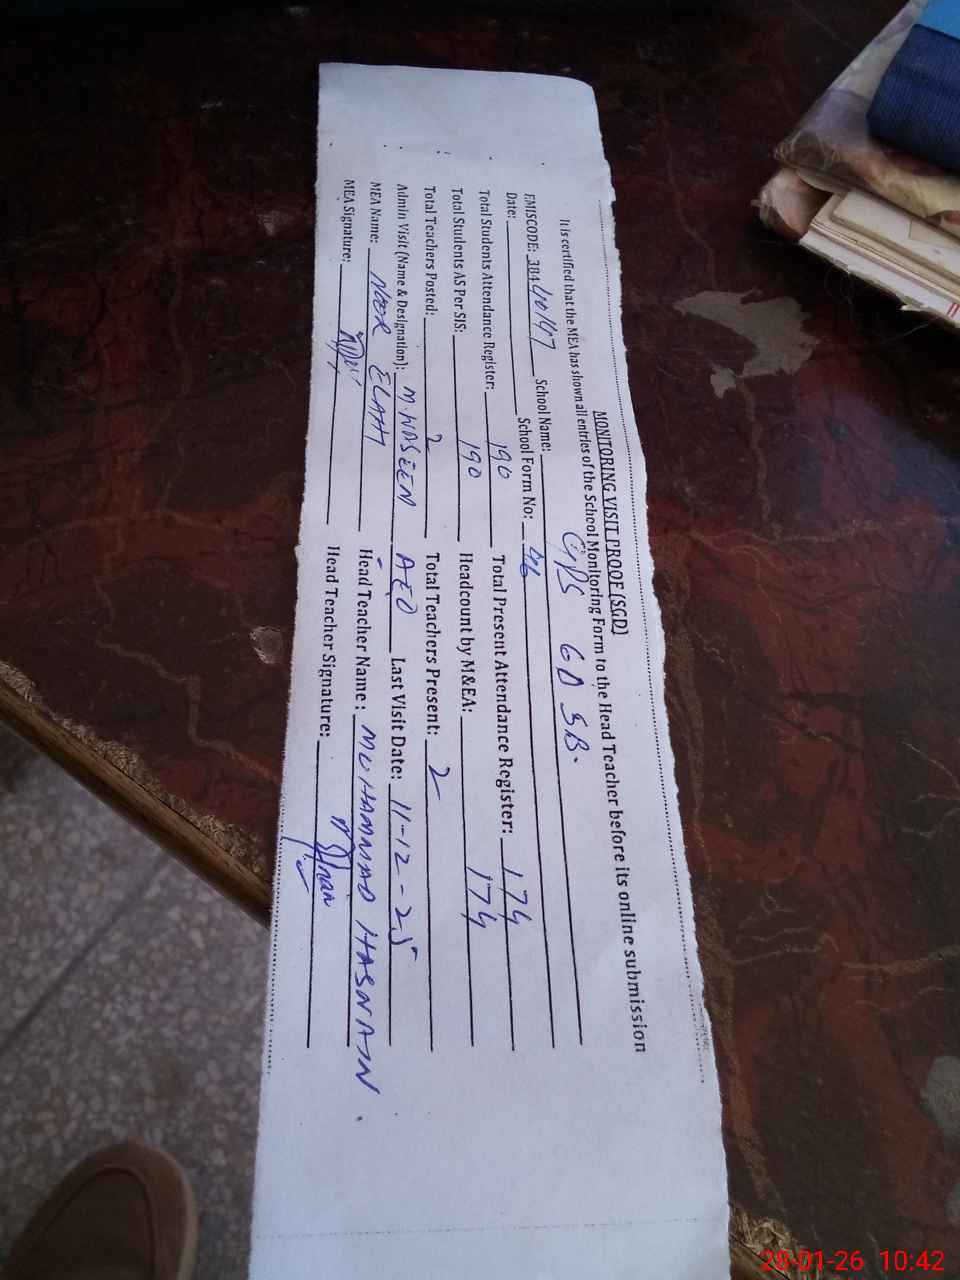 MONITORING VISIT PROOF (SGD)
It is certified that the MEA has shown all entries of the School Monitoring Form to the Head Teacher before its online submission
EMISCODE: 38440147 School Name: GPS 60 SB.
Date: School Form No: 46
Total Students Attendance Register: 190 Total Present Attendance Register: 174
Total Students AS Per SIS: 190 Headcount by M&EA: 174
Total Teachers Posted: 2 Total Teachers Present: 2
Admin Visit (Name & Designation): M. WASEEM AEO Last Visit Date: 11-12-25
MEA Name: NOOR ELAHI Head Teacher Name: MUHAMMAD HASNAIN.
MEA Signature: Head Teacher Signature:
28-01-26 10:42